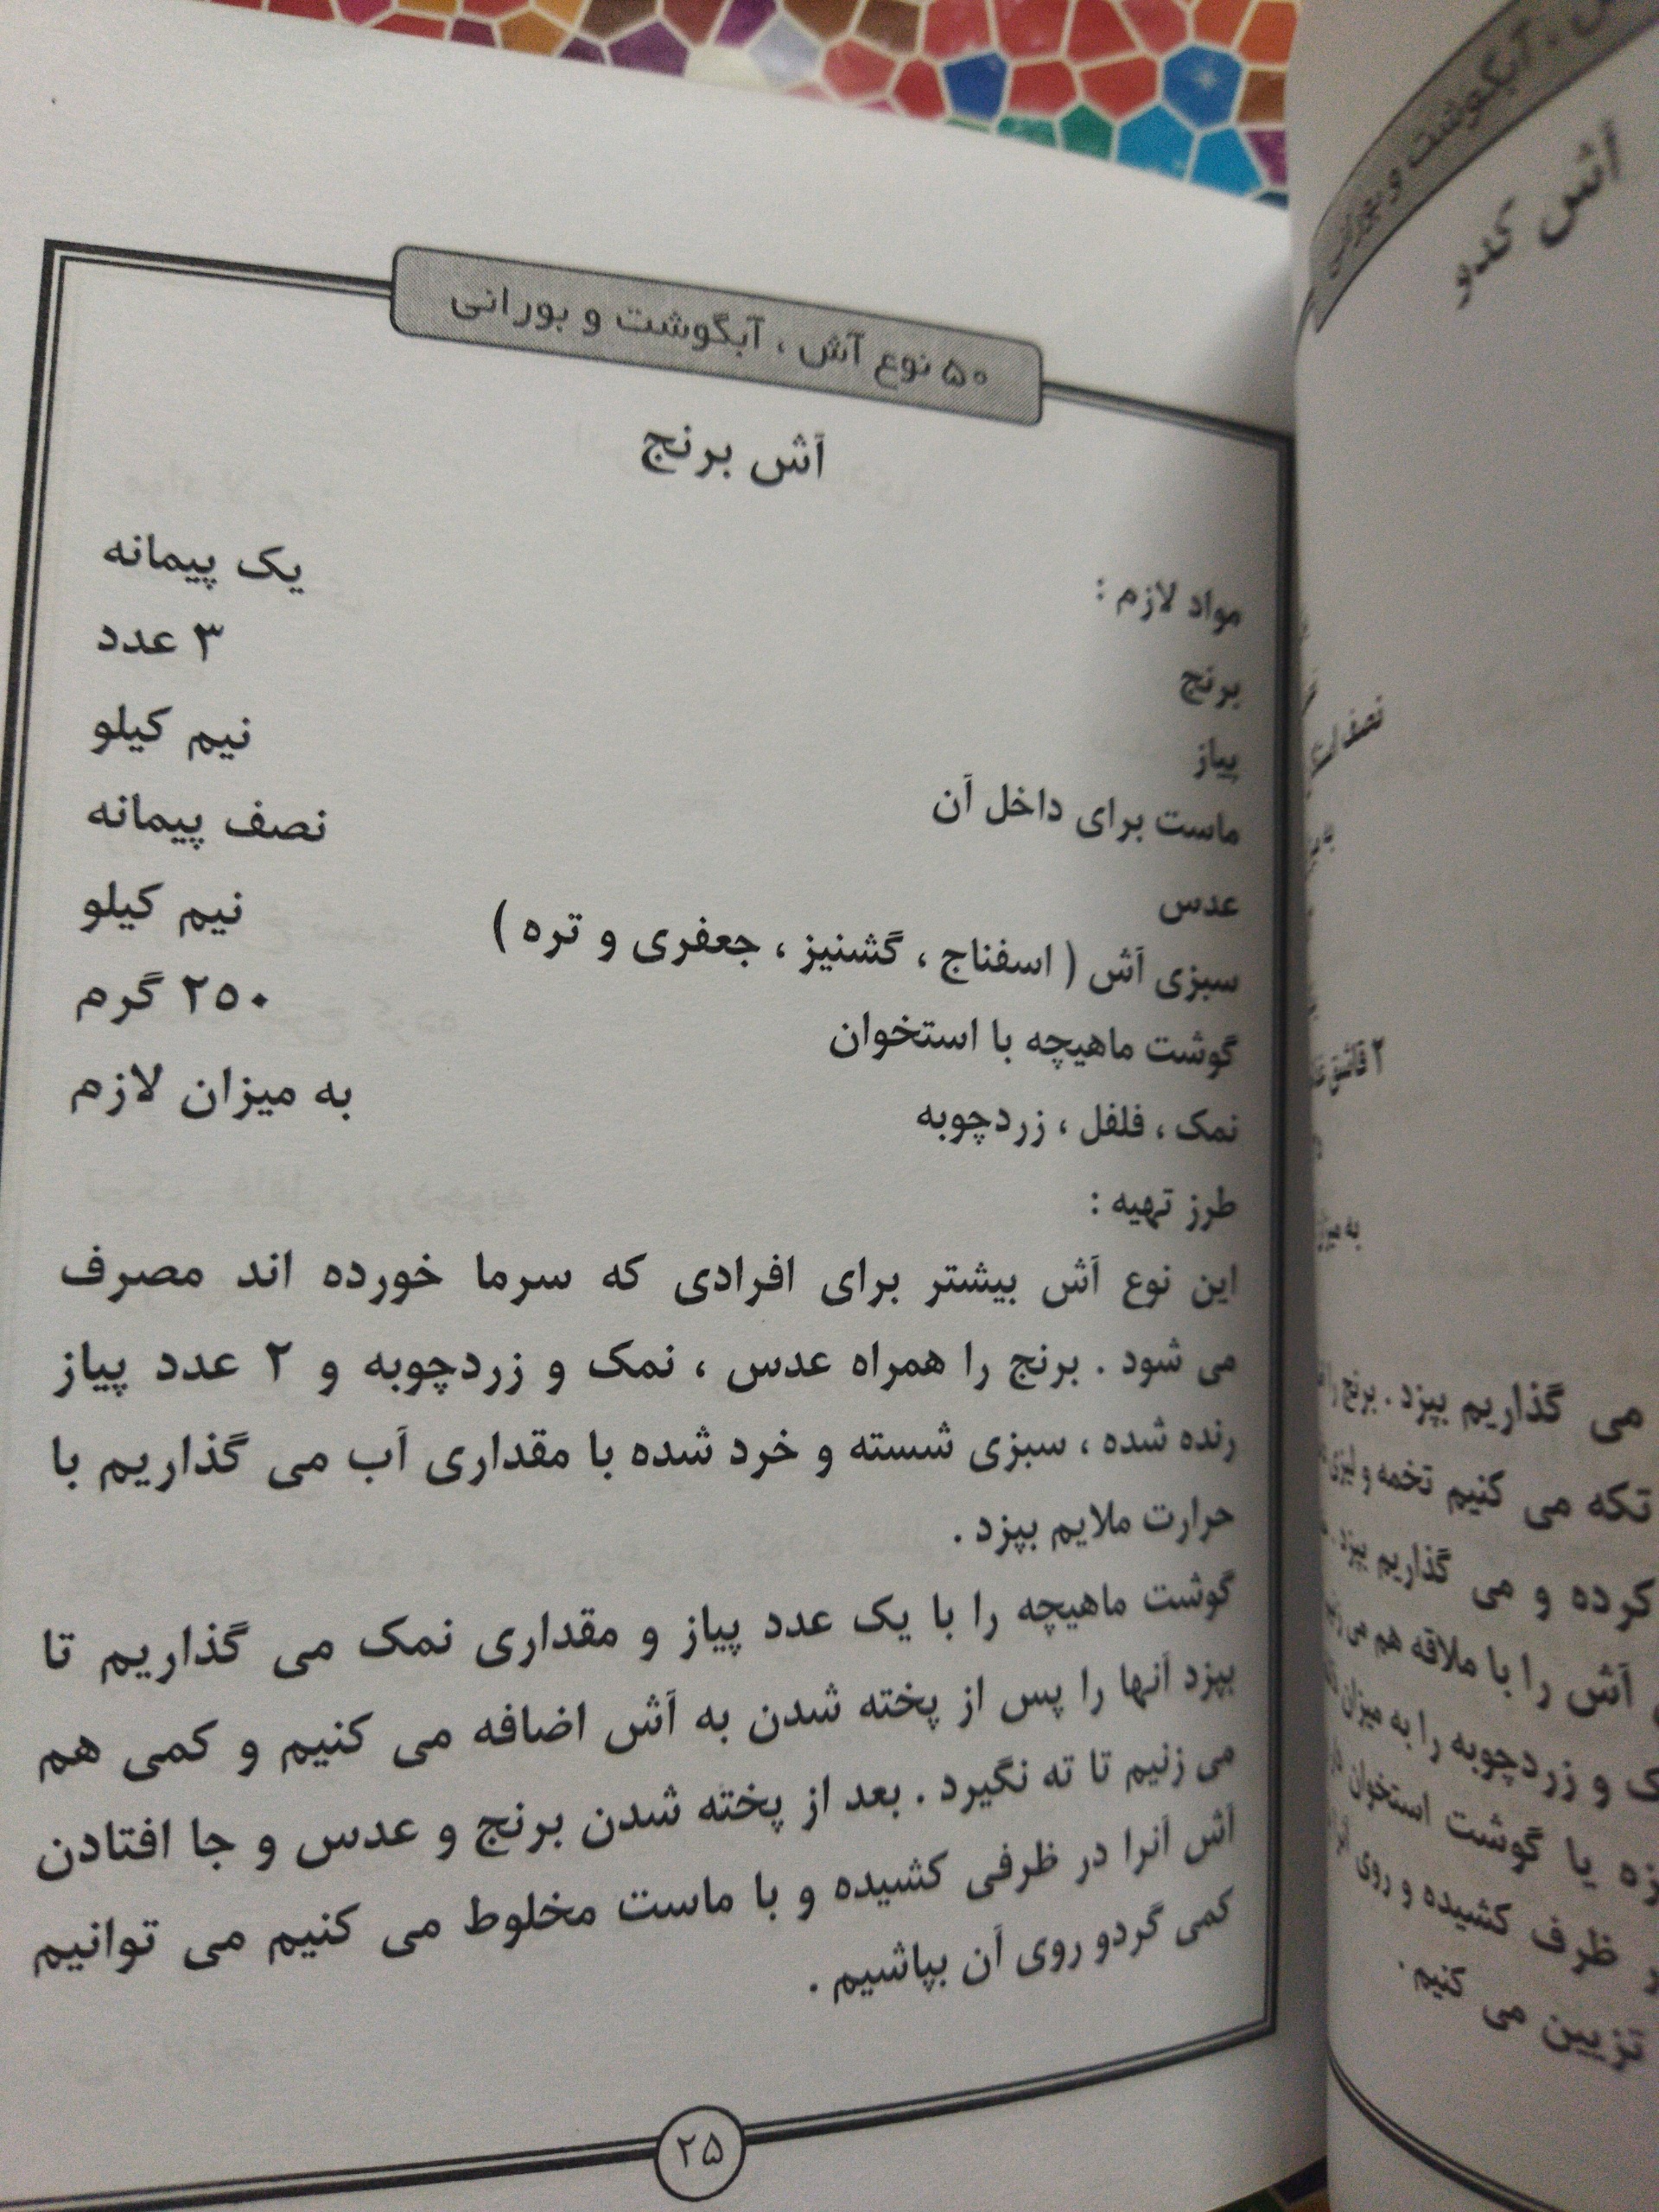 ۵۰ نوع آش ، آبگوشت و بورانی
آش برنج
مواد لازم :
برنج یک پیمانه
پیاز ۳ عدد
ماست برای داخل آن نیم کیلو
عدس نصف پیمانه
سبزی آش ( اسفناج ، گشنیز ، جعفری و تره ) نیم کیلو
گوشت ماهیچه با استخوان ۲۵۰ گرم
نمک ، فلفل ، زردچوبه به میزان لازم
طرز تهیه :
این نوع آش بیشتر برای افرادی که سرما خورده اند مصرف
می شود . برنج را همراه عدس ، نمک و زردچوبه و ۲ عدد پیاز
رنده شده ، سبزی شسته و خرد شده با مقداری آب می گذاریم با
حرارت ملایم بپزد .
گوشت ماهیچه را با یک عدد پیاز و مقداری نمک می گذاریم تا
بپزد آنها را پس از پخته شدن به آش اضافه می کنیم و کمی هم
می زنیم تا ته نگیرد . بعد از پخته شدن برنج و عدس و جا افتادن
آش آنرا در ظرفی کشیده و با ماست مخلوط می کنیم می توانیم
کمی گردو روی آن بپاشیم .
۲۵
آبگوشت و بورانی
آش کدو
نصف
۲ قاشق
به میزان
می گذاریم بپزد . برنج را
تکه می کنیم تخمه و
کرده و می گذاریم بپزد .
آش را با ملاقه هم می
و زردچوبه را به میزان
یا گوشت استخوان
ظرف کشیده و روی
تزیین می کنیم .